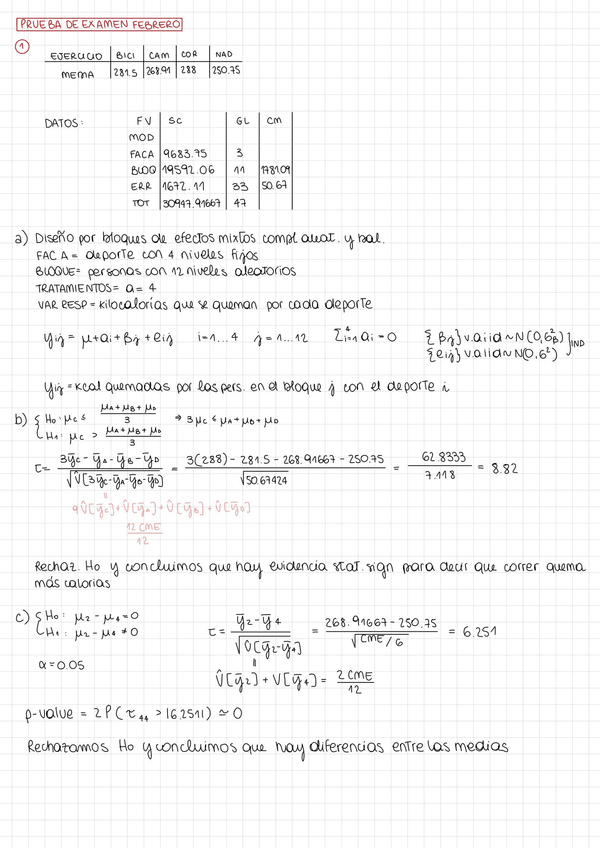 PRUEBA DE EXAMEN FEBRERO
1
EJERCICIO | BICI | CAM | COR | NAD
MEDIA | 281.5 | 268.91 | 288 | 250.75
DATOS: FV | SC | GL | CM
MOD
FACA | 9683.75 | 3
BLOQ | 19592.06 | 11 | 1781.09
ERR | 1672.11 | 33 | 50.67
TOT | 30947.91667 | 47
a) Diseño por bloques de efectos mixtos compl. aleat. y bal.
FAC A = deporte con 4 niveles fijos
BLOQUE = personas con 12 niveles aleatorios
TRATAMIENTOS = a = 4
VAR RESP = kilocalorías que se queman por cada deporte
yij = μ + ai + Bj + eij i=1...4 j=1...12 Σ⁴i=1 ai = 0 {Bj} v.a iid ~ N(0,σ²B)
{eij} v.a iid ~ N(0,σ²) ] IND
yij = kcal quemadas por las pers. en el bloque j con el deporte i
b) { H0: μc ≤ (μA + μB + μD)/3 ⇒ 3μc ≤ μA + μB + μD
H1: μc > (μA + μB + μD)/3
τ = (3ȳc - ȳA - ȳB - ȳD)/√V̂[3ȳc - ȳA - ȳB - ȳD] = (3(288) - 281.5 - 268.91667 - 250.75)/√50.67424 = 62.8333/7.118 = 8.82
"
9V̂[ȳc] + V̂[ȳA] + V̂[ȳB] + V̂[ȳD]
12 CME
12
Rechaz. H0 y concluimos que hay evidencia stat. sign para decir que correr quema
más calorias
c) { H0: μ2 - μ4 = 0
H1: μ2 - μ4 ≠ 0
τ = (ȳ2 - ȳ4)/√V̂[ȳ2 - ȳ4] = (268.91667 - 250.75)/√CME/6 = 6.251
α = 0.05
"
V̂[ȳ2] + V[ȳ4] = 2 CME/12
p-value = 2P(τ44 > |6.251|) ≃ 0
Rechazamos H0 y concluimos que hay diferencias entre las medias